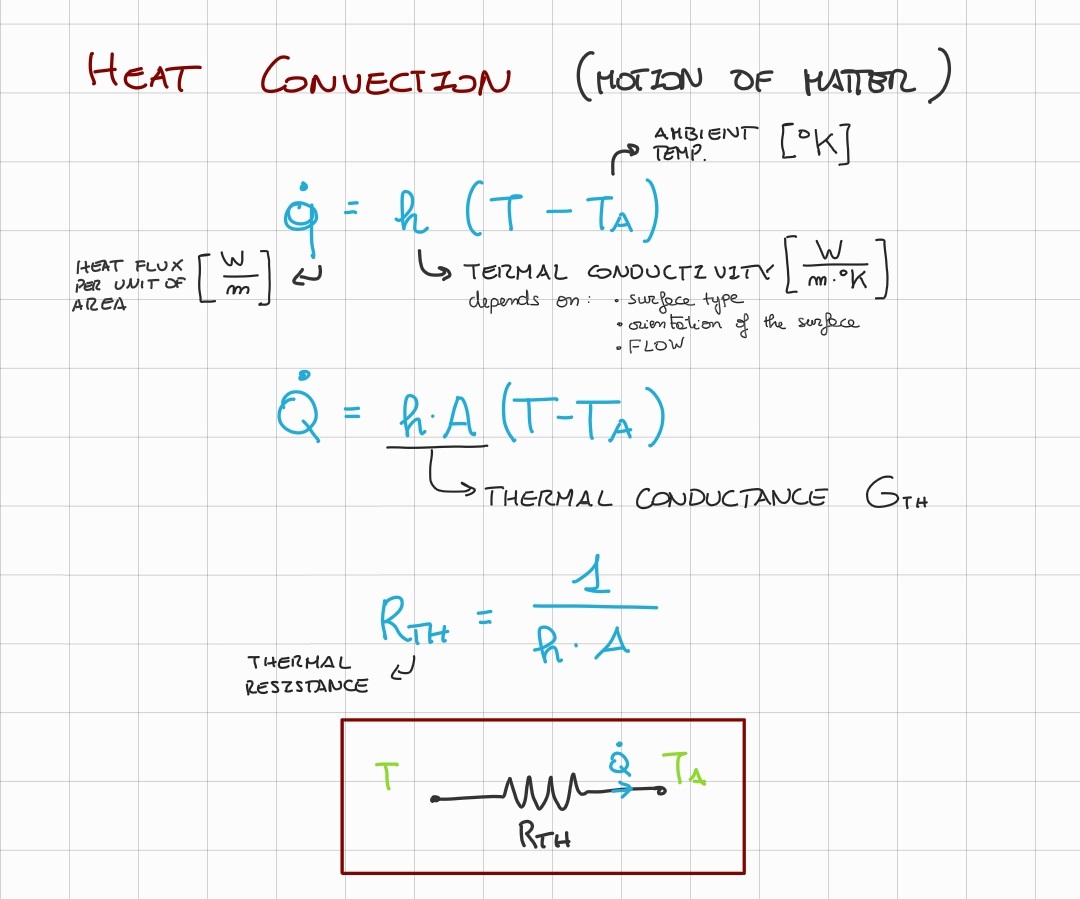 HEAT CONVECTION (MOTION OF MATTER)
AMBIENT TEMP. [°K]
q̇ = h (T - TA)
HEAT FLUX PER UNIT OF AREA [W/m]
TERMAL CONDUCTIVITY [W/m·°K]
depends on: · surface type
· orientation of the surface
· FLOW
Q̇ = h·A (T-TA)
THERMAL CONDUCTANCE GTH
RTH = 1/h·A
THERMAL
RESISTANCE
T Q̇ TA
RTH